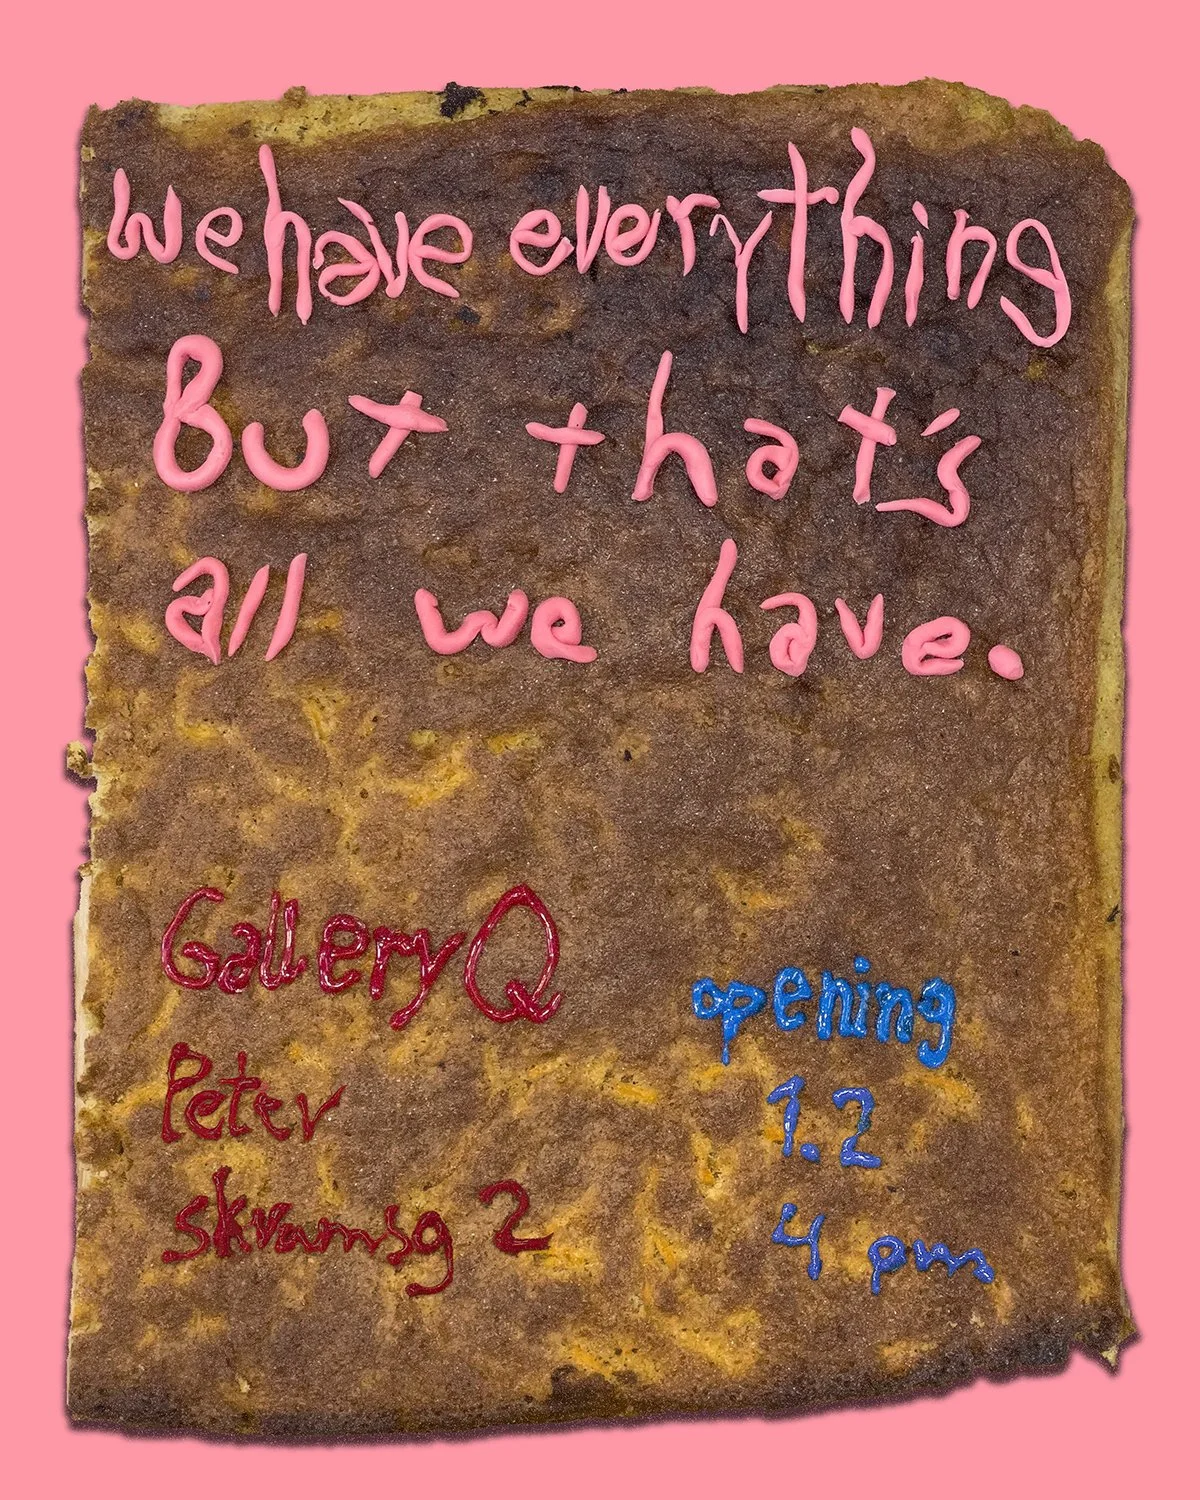 we have everything
But that's
all we have.
Gallery Q
Peter
skramsg 2
opening
1.2
4 pm